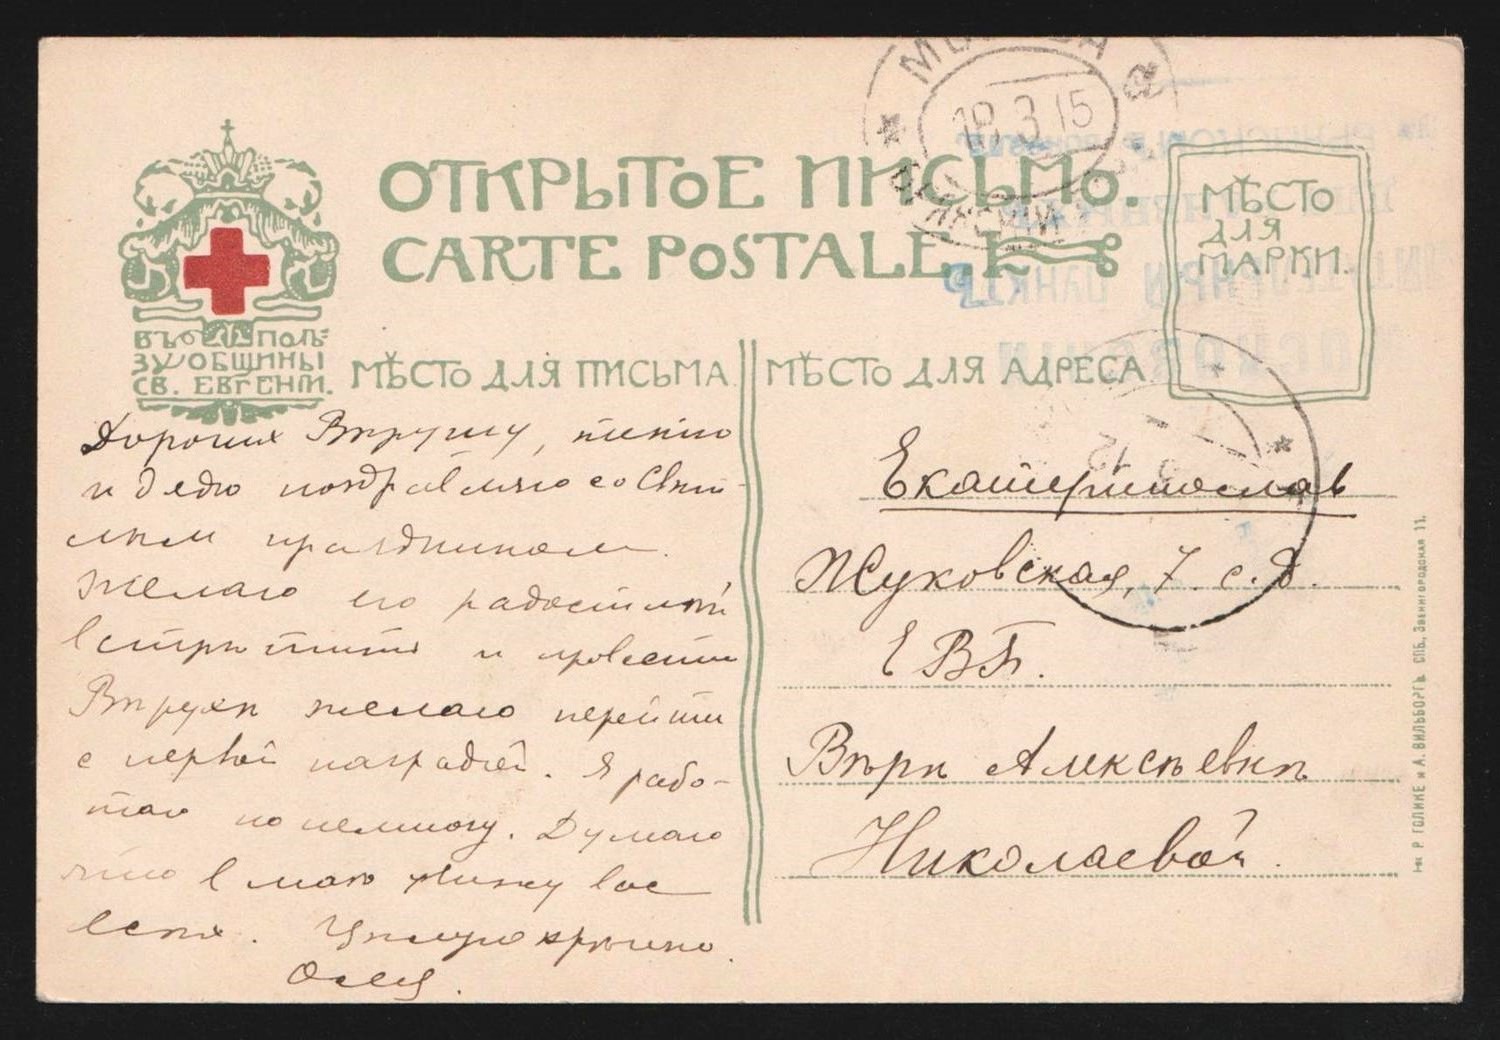 МОСКВА
18.3.15
ОТКРЫТОЕ ПИСЬМО.
CARTE POSTALE.
МѢСТО
ДЛЯ
МАРКИ.
ВЪ ПОЛЬ=
ЗУ ОБЩИНЫ
СВ. ЕВГЕНІИ.
МѢСТО ДЛЯ ПИСЬМА
МѢСТО ДЛЯ АДРЕСА
Дорогих Вѣрушу, тетю
и дядю поздравляю со Свѣт-
лым праздником.
Желаю его радостно
встрѣтить и провести
Вѣрухѣ желаю перейти
с первой наградой. Я рабо-
таю понемногу. Думаю
что в маю увижу вас
всѣх. Цѣлую крѣпко
Олея.
Екатеринослав
Жуковская, 7 с. д.
Е В Б.
Вѣрѣ Алексѣевнѣ
Николаевой.
Т-во Р. ГОЛИКЕ и А. ВИЛЬБОРГЪ. СПБ., Звенигородская 11.